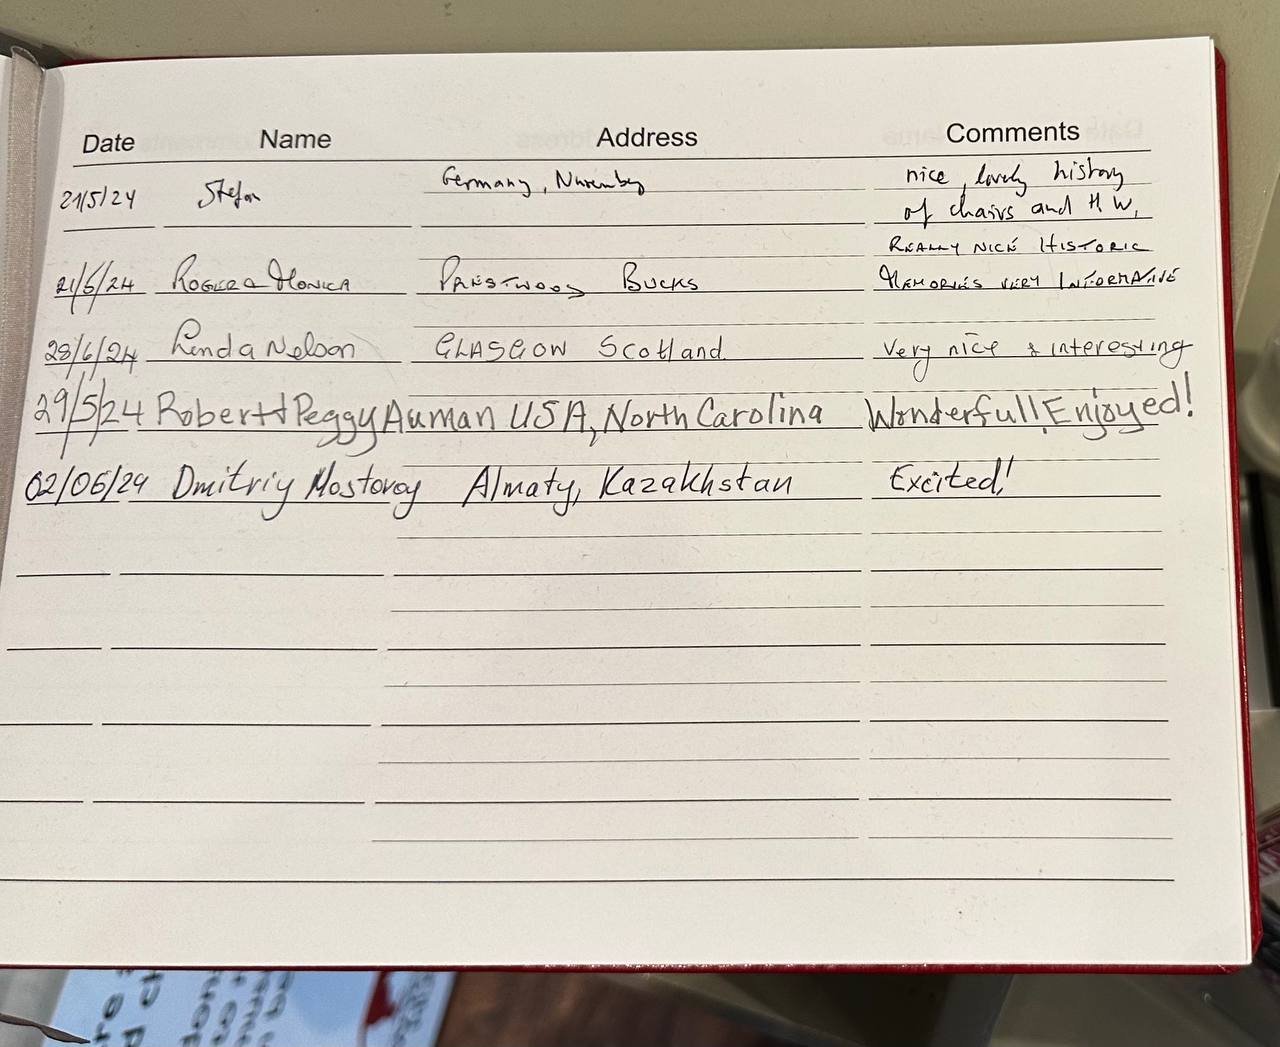 Date Name Address Comments
21/5/24 Stefan Germany, Nuremberg nice, lovely history
of chairs and H.W.
REALLY NICE HISTORIC
21/5/24 ROGER & MONICA PRESTWOOD BUCKS MEMORIES VERY INFORMATIVE
28/6/24 Linda Nelson GLASGOW Scotland very nice & interesting
29/5/24 Robert+Peggy Auman USA, North Carolina Wonderfull, Enjoyed!
02/06/24 Dmitriy Mostovoy Almaty, Kazakhstan Excited!